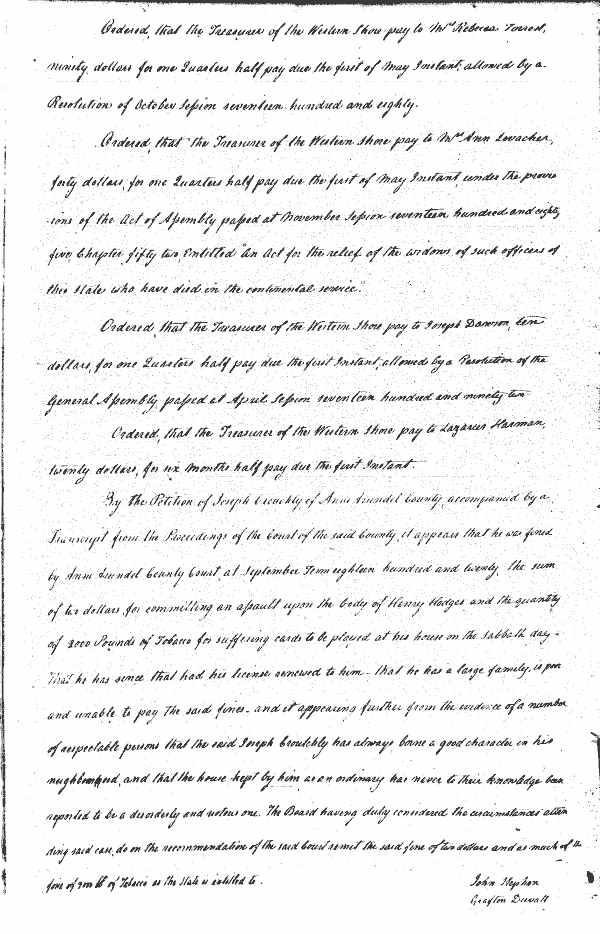 Ordered, that the Treasurer of the Western Shore pay to Mrs Rebecca Forrest,
ninety dollars for one Quarters half pay due the first of May Instant, allowed by a
Resolution of October Session seventeen hundred and eighty.
Ordered, that the Treasurer of the Western Shore pay to Mrs Ann Levacher,
forty dollars, for one Quarters half pay due the first of May Instant, under the provis
ions of the Act of Assembly passed at November Session seventeen hundred and eighty
five Chapter fifty two, Entitled "An Act for the relief of the widows of such officers of
this State who have died in the continental service".
Ordered, that the Treasurer of the Western Shore pay to Joseph Dawson, ten
dollars, for one Quarters half pay due the first Instant, allowed by a Resolution of the
General Assembly, passed at April Session seventeen hundred and ninety two
Ordered, that the Treasurer of the Western Shore pay to Lazarus Harman,
twenty dollars, for six Months half pay due the first Instant.
By the Petition of Joseph Crouchly of Anne Arundel County, accompanied by a
Transcript from the Proceedings of the Court of the said County, it appears that he was fined
by Anne Arundel County Court at September Term eighteen hundred and twenty, the sum
of ten dollars for committing an assault upon the body of Henry Hodges and the quantity
of 2000 Pounds of Tobacco for suffering cards to be played at his house on the Sabbath day -
That he has since that had his license renewed to him - that he has a large family, is poor
and unable to pay the said fines - and it appearing further from the evidence of a number
of respectable persons that the said Joseph Crouchly has always borne a good character in his
neighbourhood, and that the house kept by him as an ordinary has never to their knowledge been
reported to be a disorderly and riotous one. The Board having duly considered the circumstances atten
ding said case, do on the recommendation of the said Court remit the said fine of ten dollars and as much of the
fine of lb of Tobacco as the State is entitled to.
John Stephen
Grafton Duvall